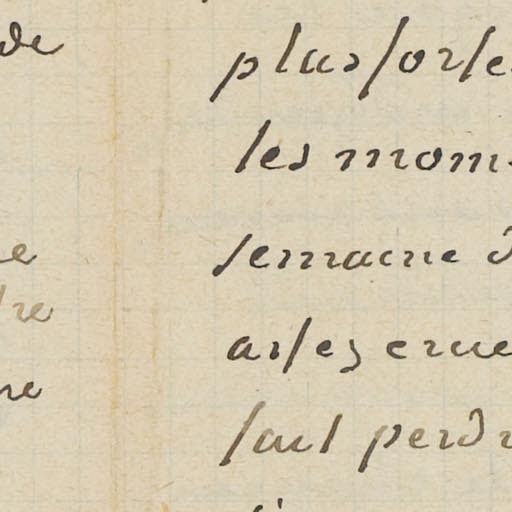 de
e
tre
re
plus forte
les mom
semaine d
assez crue
fait perdr